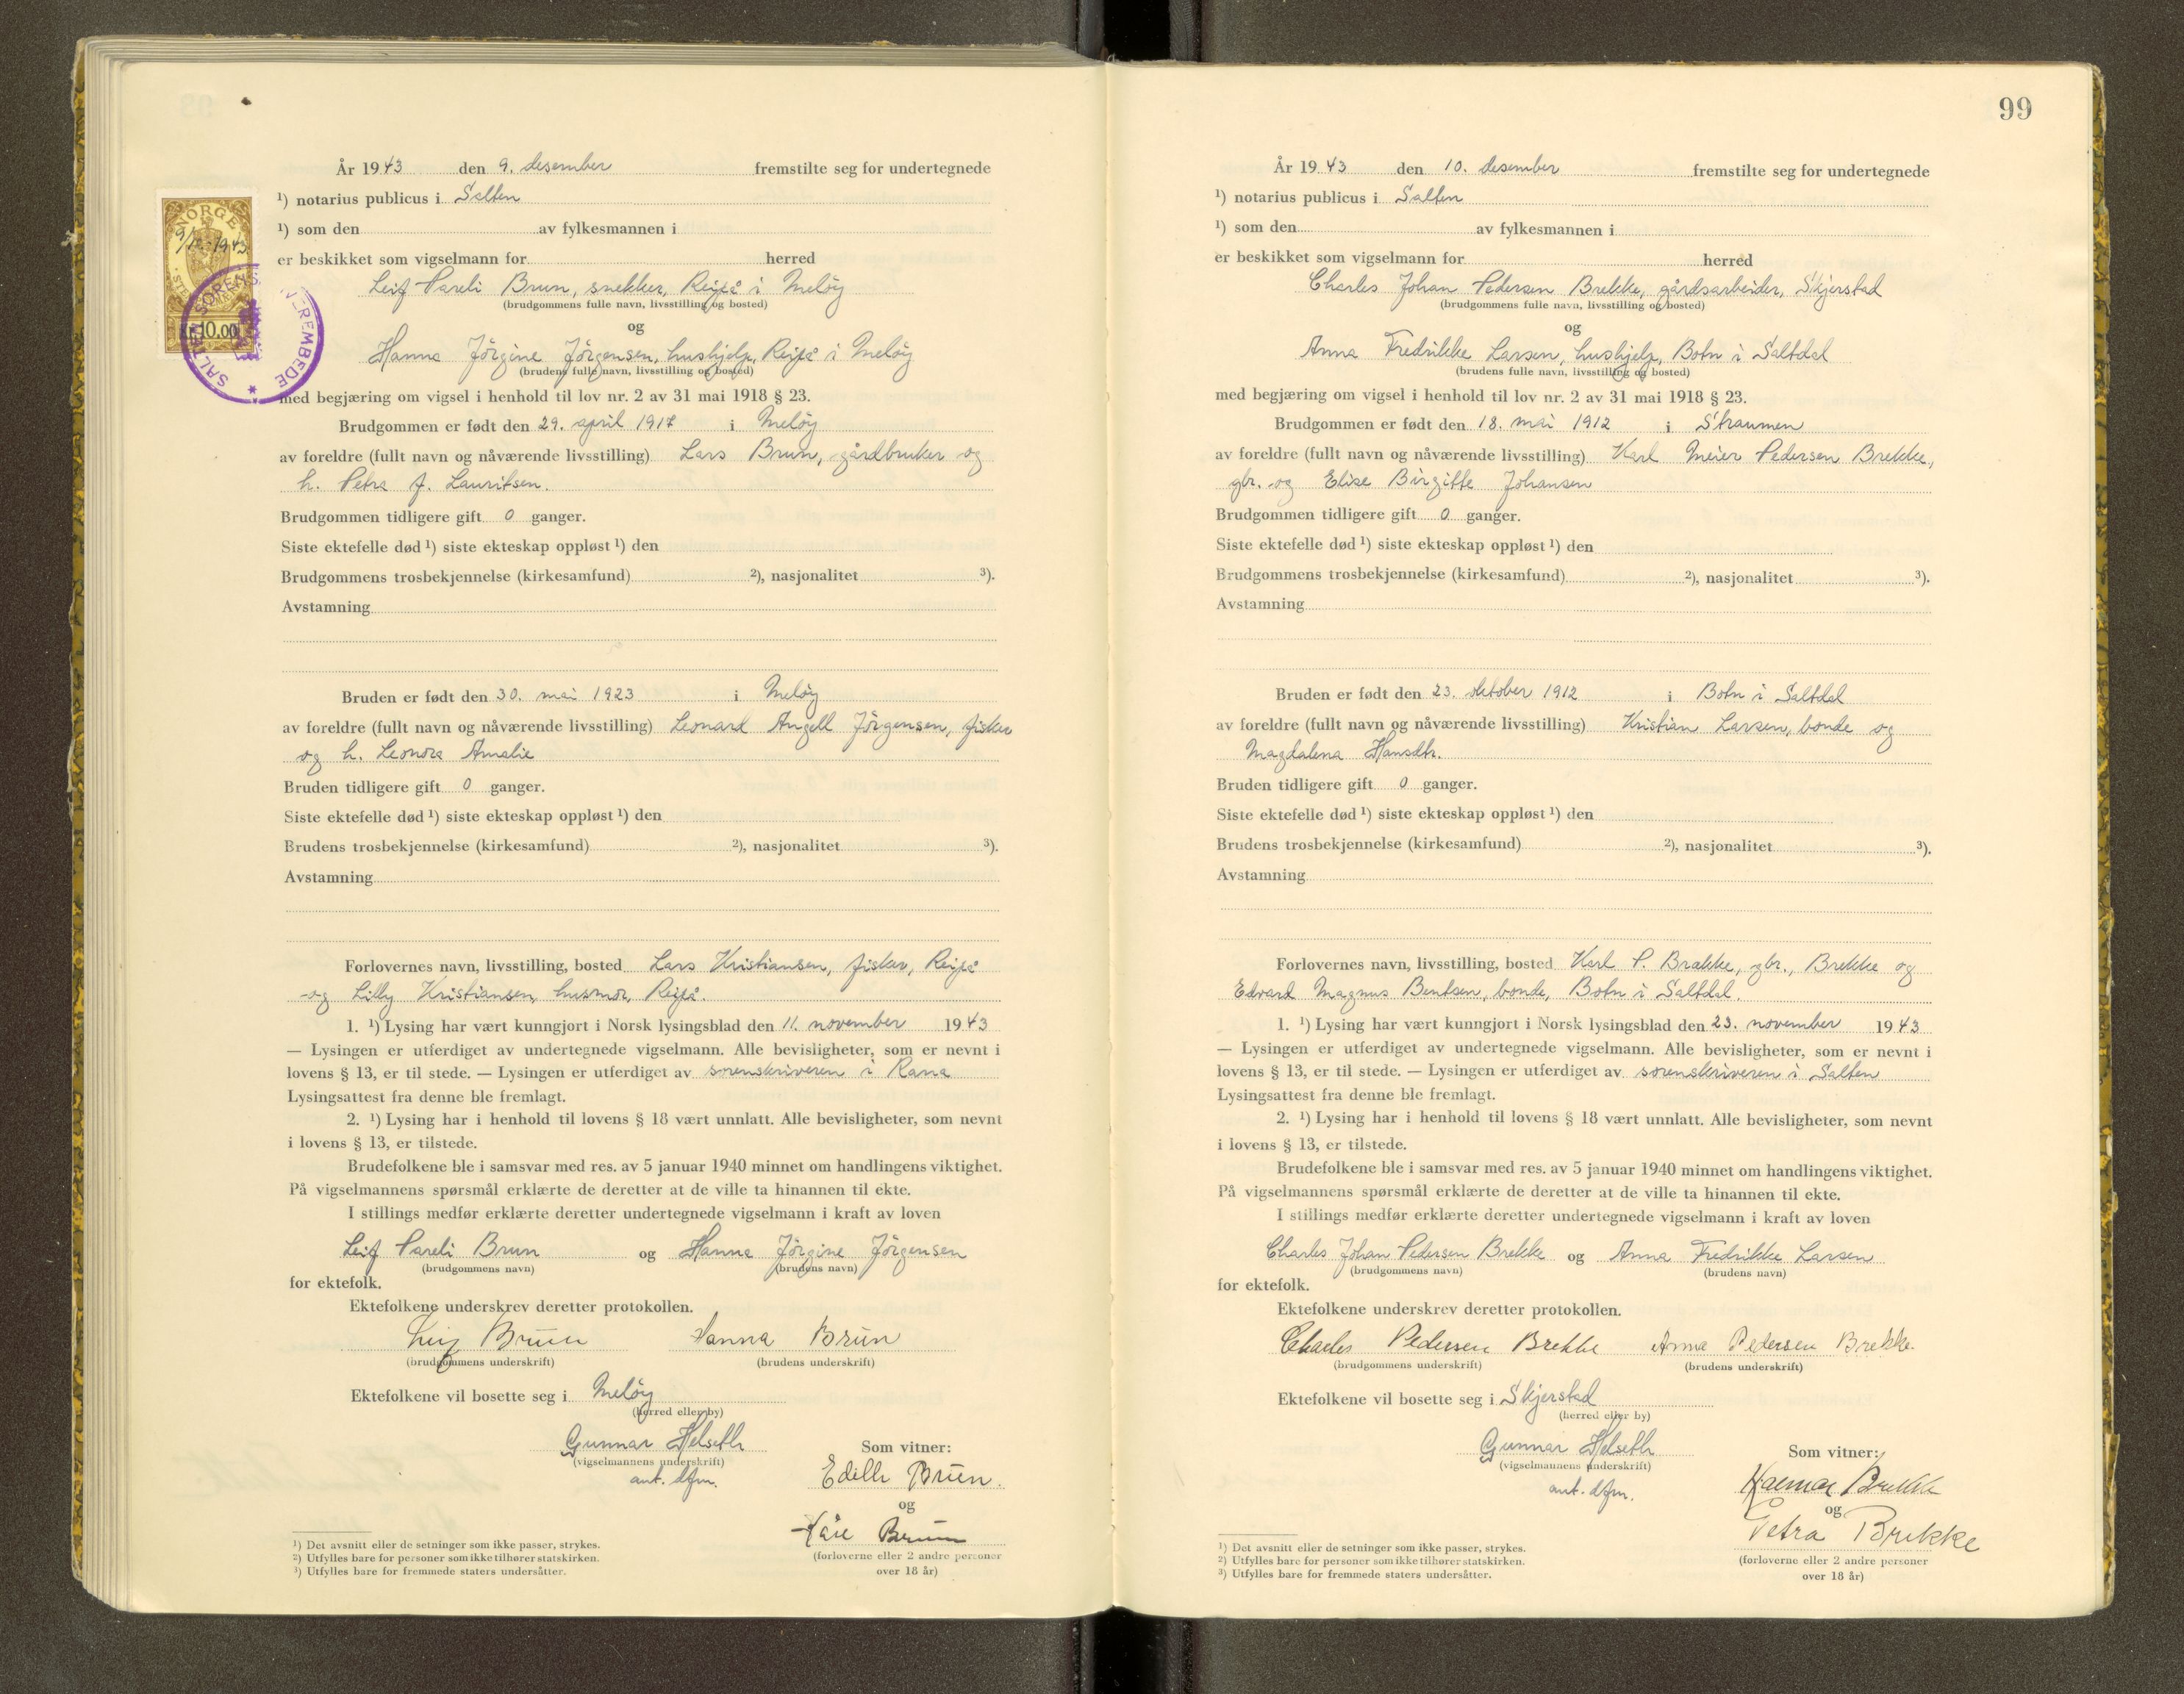 År 1943 den 9. desember fremstilte seg for undertegnede
¹) notarius publicus i Salten
¹) som den av fylkesmannen i
er beskikket som vigselmann for herred
Leif Pareli Brun, snekker, Reipå i Meløy
(brudgommens fulle navn, livsstilling og bosted)
og
Hanna Jörgine Jörgensen, hushjelp, Reipå i Meløy
(brudens fulle navn, livsstilling og bosted)
med begjæring om vigsel i henhold til lov nr. 2 av 31 mai 1918 § 23.
Brudgommen er født den 29. april 1917 i Meløy
av foreldre (fullt navn og nåværende livsstilling) Lars Brun, gårdbruker og
h. Petra J. Lauritsen.
Brudgommen tidligere gift 0 ganger.
Siste ektefelle død ¹) siste ekteskap oppløst ¹) den
Brudgommens trosbekjennelse (kirkesamfund) ²), nasjonalitet ³).
Avstamning
Bruden er født den 30. mai 1923 i Meløy
av foreldre (fullt navn og nåværende livsstilling) Leonard Angell Jörgensen, fisker
og h. Leonora Amalie
Bruden tidligere gift 0 ganger.
Siste ektefelle død ¹) siste ekteskap oppløst ¹) den
Brudens trosbekjennelse (kirkesamfund) ²), nasjonalitet ³).
Avstamning
Forlovernes navn, livsstilling, bosted Lars Kristiansen, fisker, Reipå
og Lilly Kristiansen, husmor, Reipå.
1. ¹) Lysing har vært kunngjort i Norsk lysingsblad den 11. november 1943
— Lysingen er utferdiget av undertegnede vigselmann. Alle bevisligheter, som er nevnt i
lovens § 13, er til stede. — Lysingen er utferdiget av sorenskriveren i Rana
Lysingsattest fra denne ble fremlagt.
2. ¹) Lysing har i henhold til lovens § 18 vært unnlatt. Alle bevisligheter, som nevnt
i lovens § 13, er tilstede.
Brudefolkene ble i samsvar med res. av 5 januar 1940 minnet om handlingens viktighet.
På vigselmannens spørsmål erklærte de deretter at de ville ta hinannen til ekte.
I stillings medfør erklærte deretter undertegnede vigselmann i kraft av loven
Leif Pareli Brun og Hanna Jörgine Jörgensen
(brudgommens navn) (brudens navn)
for ektefolk.
Ektefolkene underskrev deretter protokollen.
Leif Bruun Hanna Brun
(brudgommens underskrift) (brudens underskrift)
Ektefolkene vil bosette seg i Meløy
(herred eller by)
Gunnar Helseth
(vigselmannens underskrift)
aut. dfm.
Som vitner:
Edith Brun.
og
Kåre Bruun
(forloverne eller 2 andre personer
over 18 år)
¹) Det avsnitt eller de setninger som ikke passer, strykes.
²) Utfylles bare for personer som ikke tilhører statskirken.
³) Utfylles bare for fremmede staters undersåtter.
NORGE
9/12-1943
10.00
SALTEN SORENSKRIVEREMBEDE
99
År 1943 den 10. desember fremstilte seg for undertegnede
¹) notarius publicus i Salten
¹) som den av fylkesmannen i
er beskikket som vigselmann for herred
Charles Johan Pedersen Brekke, gårdsarbeider, Skjerstad
(brudgommens fulle navn, livsstilling og bosted)
og
Anna Fredrikke Larsen, hushjelp, Botn i Saltdal
(brudens fulle navn, livsstilling og bosted)
med begjæring om vigsel i henhold til lov nr. 2 av 31 mai 1918 § 23.
Brudgommen er født den 18. mai 1912 i Straumen
av foreldre (fullt navn og nåværende livsstilling) Karl Meier Pedersen Brekke,
gbr. og Elise Birgitte Johansen
Brudgommen tidligere gift 0 ganger.
Siste ektefelle død ¹) siste ekteskap oppløst ¹) den
Brudgommens trosbekjennelse (kirkesamfund) ²), nasjonalitet ³).
Avstamning
Bruden er født den 23. oktober 1912 i Botn i Saltdal
av foreldre (fullt navn og nåværende livsstilling) Kristian Larsen, bonde og
Magdalena Hansdtr.
Bruden tidligere gift 0 ganger.
Siste ektefelle død ¹) siste ekteskap oppløst ¹) den
Brudens trosbekjennelse (kirkesamfund) ²), nasjonalitet ³).
Avstamning
Forlovernes navn, livsstilling, bosted Karl P. Brekke, gbr., Brekke og
Edvard Magnus Bentsen, bonde, Botn i Saltdal.
1. ¹) Lysing har vært kunngjort i Norsk lysingsblad den 23. november 1943
— Lysingen er utferdiget av undertegnede vigselmann. Alle bevisligheter, som er nevnt i
lovens § 13, er til stede. — Lysingen er utferdiget av sorenskriveren i Salten
Lysingsattest fra denne ble fremlagt.
2. ¹) Lysing har i henhold til lovens § 18 vært unnlatt. Alle bevisligheter, som nevnt
i lovens § 13, er tilstede.
Brudefolkene ble i samsvar med res. av 5 januar 1940 minnet om handlingens viktighet.
På vigselmannens spørsmål erklærte de deretter at de ville ta hinannen til ekte.
I stillings medfør erklærte deretter undertegnede vigselmann i kraft av loven
Charles Johan Pedersen Brekke og Anna Fredrikke Larsen
(brudgommens navn) (brudens navn)
for ektefolk.
Ektefolkene underskrev deretter protokollen.
Charles Pedersen Brekke Anna Pedersen Brekke.
(brudgommens underskrift) (brudens underskrift)
Ektefolkene vil bosette seg i Skjerstad
(herred eller by)
Gunnar Helseth
(vigselmannens underskrift)
aut. dfm.
Som vitner:
Halmar Brekke
og
Petra Brekke
(forloverne eller 2 andre personer
over 18 år)
¹) Det avsnitt eller de setninger som ikke passer, strykes.
²) Utfylles bare for personer som ikke tilhører statskirken.
³) Utfylles bare for fremmede staters undersåtter.